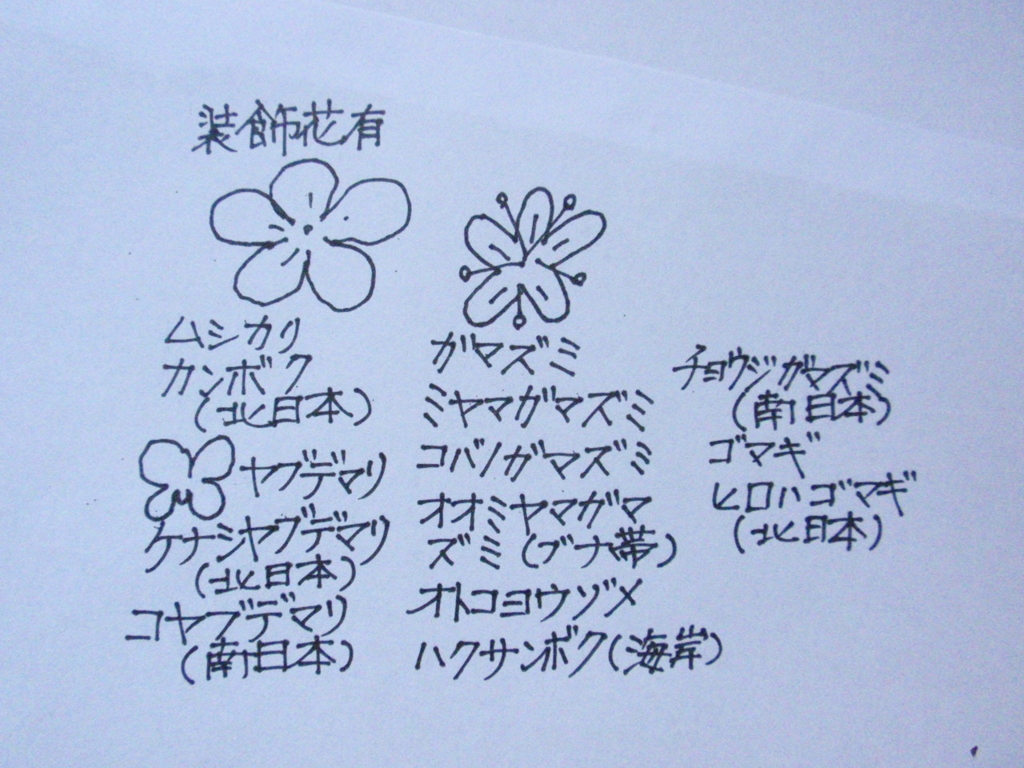 装飾花有
ムシカリ
カンボク
(北日本)
ヤブデマリ
ケナシヤブデマリ
(北日本)
コヤブデマリ
(南日本)
ガマズミ
ミヤマガマズミ
コバノガマズミ
オオミヤマガマ
ズミ(ブナ帯)
オトコヨウゾメ
ハクサンボク(海岸)
チョウジガマズミ
(南日本)
ゴマギ
ヒロハゴマギ
(北日本)